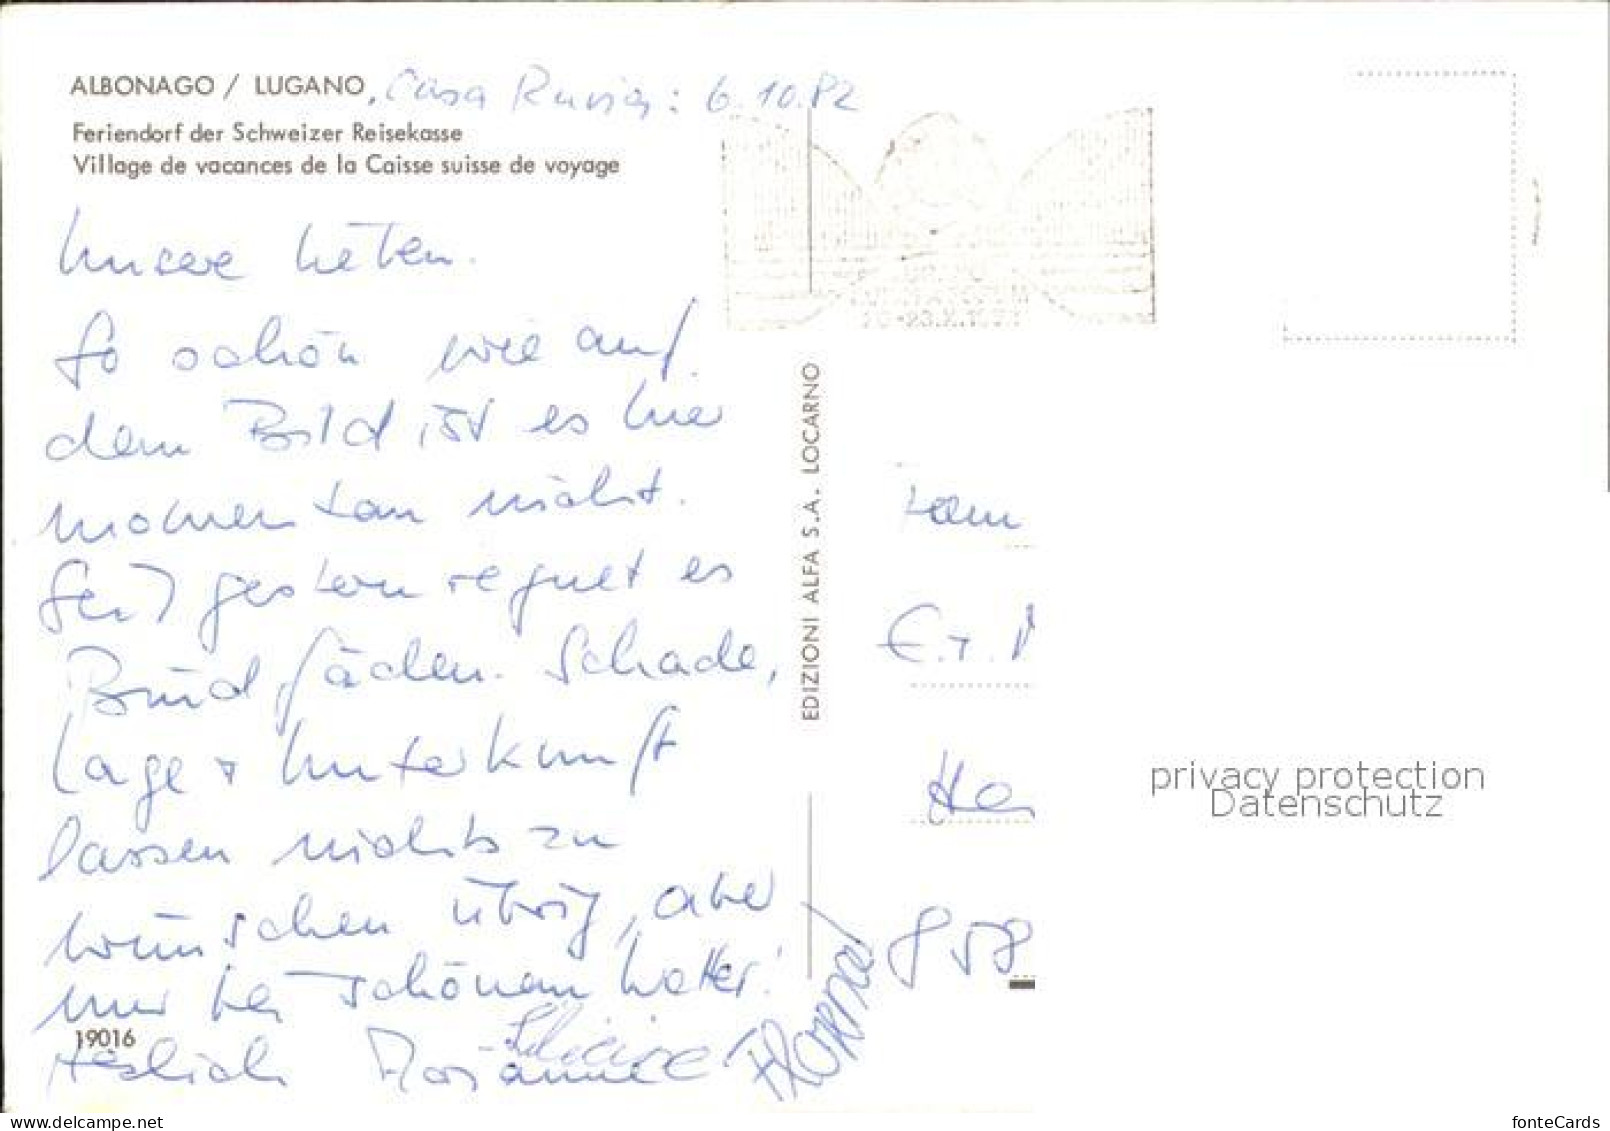 ALBONAGO / LUGANO, Casa Rusia: 6.10.82
Feriendorf der Schweizer Reisekasse
Village de vacances de la Caisse suisse de voyage
Unsere lieben.
So schön wie auf
dem Bild ist es hier
momentan nicht.
Seit gestern regnet es
Bindfäden. Schade,
Lage + Unterkunft
lassen nichts zu
wünschen übrig, aber
nur bei schönem Wetter!
Herzlich Rosanne
Florence
19016
EDIZIONI ALFA S.A. LOCARNO
Fam
E. + 
He
858
privacy protection
Datenschutz
fonteCards